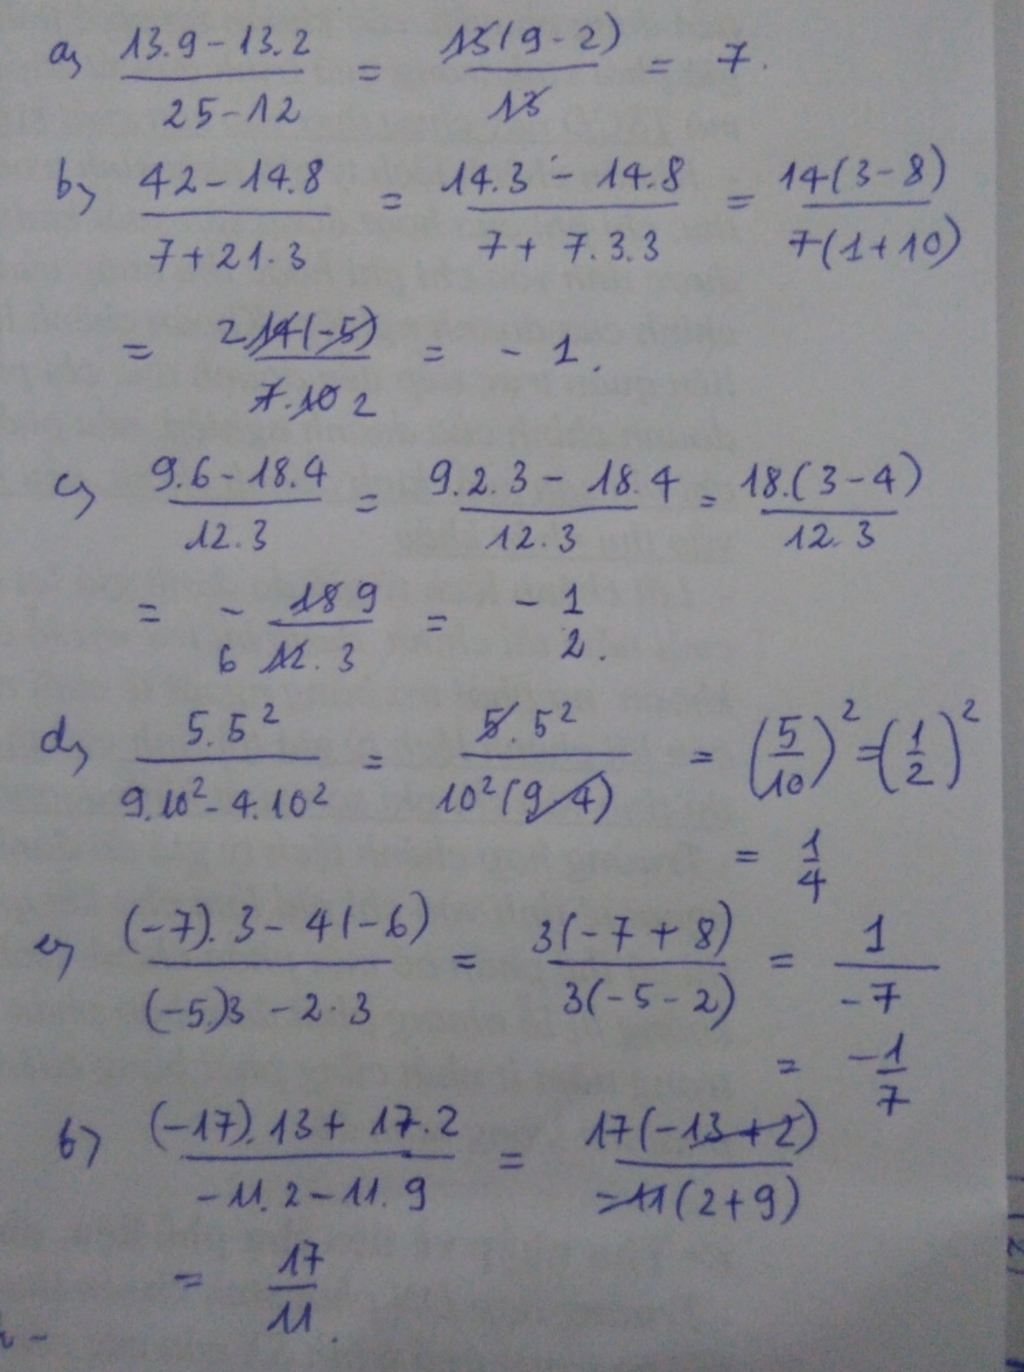 a) (13.9 - 13.2)/(25 - 12) = 13(9 - 2)/13 = 7.
b) (42 - 14.8)/(7 + 21.3) = (14.3 - 14.8)/(7 + 7.3.3) = 14(3 - 8)/7(1 + 10)
= 2 14(-5)/7.10 2 = - 1.
c) (9.6 - 18.4)/(12.3) = (9.2.3 - 18.4)/(12.3) = 18.(3 - 4)/(12.3)
= - 18 9/6 12.3 = - 1/2.
d) 5.5²/(9.10² - 4.10²) = 5.5²/10²(9-4) = (5/10)² = (1/2)²
= 1/4
e) ((-7).3 - 4(-6))/((-5)3 - 2.3) = 3(-7 + 8)/3(-5 - 2) = 1/-7
= -1/7
6) ((-17).13 + 17.2)/(-11.2 - 11.9) = 17(-13 + 2)/-11(2 + 9)
= 17/11.